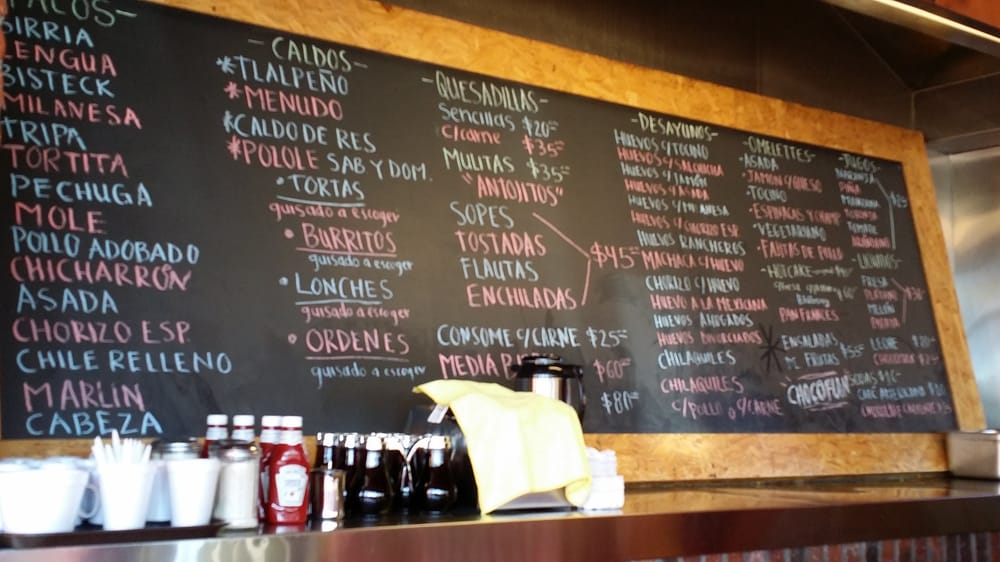 TACOS-
BIRRIA
LENGUA
BISTECK
MILANESA
TRIPA
TORTITA
PECHUGA
MOLE
POLLO ADOBADO
CHICHARRÓN
ASADA
CHORIZO ESP.
CHILE RELLENO
MARLIN
CABEZA
-CALDOS-
*TLALPEÑO
*MENUDO
*CALDO DE RES
*POLOLE SAB Y DOM.
•TORTAS
guisado a escoger
•BURRITOS
guisado a escoger
•LONCHES
guisado a escoger
•ORDENES
guisado a escoger
-QUESADILLAS-
Sencillas $20
C/carne $35
MULITAS $35
"ANTOJITOS"
SOPES
TOSTADAS
FLAUTAS
ENCHILADAS
$45
CONSOME C/CARNE $25
MEDIA
$60
$80
-DESAYUNOS-
HUEVOS C/TOCINO
HUEVOS C/SALCHICHA
HUEVOS C/JAMÓN
HUEVOS C/ASADA
HUEVOS C/MILANESA
HUEVOS C/CHORIZO ESP.
HUEVOS RANCHEROS
MACHACA C/HUEVO
CHORIZO C/HUEVO
HUEVO A LA MEXICANA
HUEVOS AHOGADOS
HUEVOS DIVORCIADOS
CHILAQUILES
CHILAQUILES
C/POLLO o C/CARNE
-OMELETTES-
-ASADA
-JAMON Y QUESO
-TOCINO
-ESPINACAS Y CHAMP
-VEGETARIANO
-FAJITAS DE POLLO
-HOTCAKE
PAN FRANCES
ENSALADAS
DE FRUTAS $55
CHOCOFLAN
-JUGOS-
NARANJA
PIÑA
MANZANA
TORONJA
TOMATE
$25
-LICUADOS-
FRESA
PLATANO
MELÓN
PAPAYA
$30
LECHE
SODAS
HEINZ